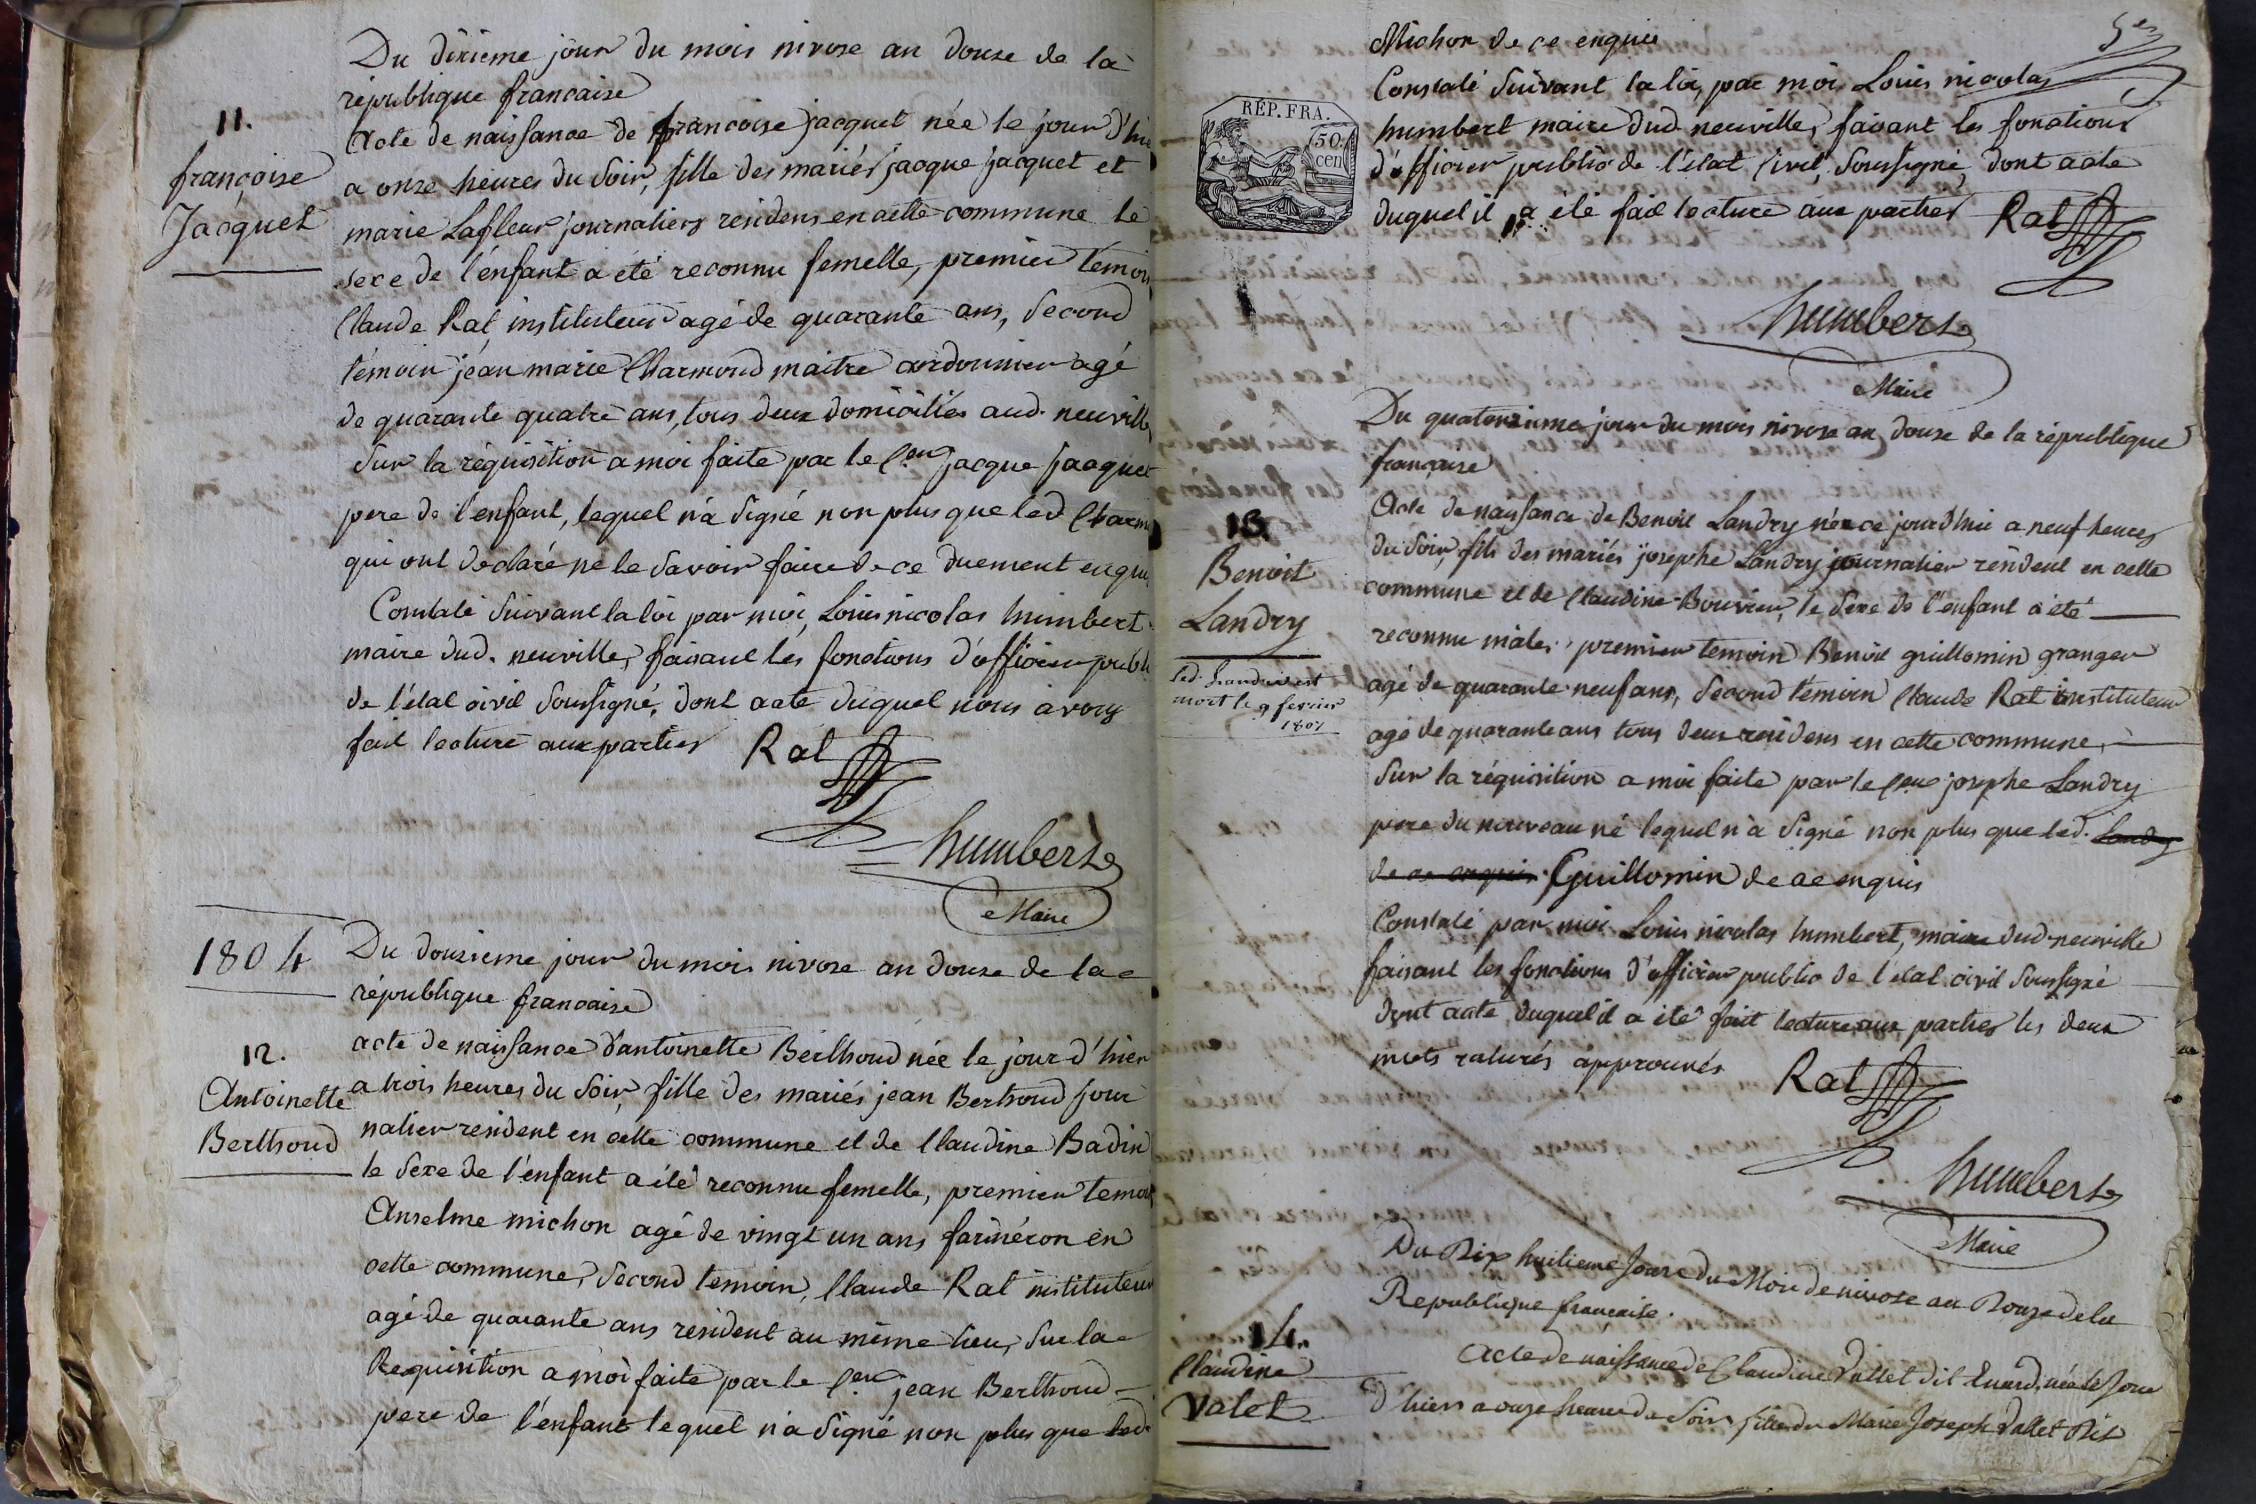 Du dixieme jour du mois nivose an douze de la
république francaise
11.
françoise
Jacquet
Acte de naissance de francoise jacquet née le jour d'hie
a onze heures du soir, fille des mariés jacque jacquet et
marie Lafleur journaliers residens en cette commune le
sexe de l'enfant a été reconnu femelle, premier témoin
Claude Rat instituteur agé de quarante ans, second
témoin jean marie Charmond maitre cordonnier agé
de quarante quatre ans, tous deux domiciliés aud. neuville
Sur la réquisition a moi faite par le Cen jacque jacquet
pere de l'enfant, lequel n'a signé non plus que led Charm
qui ont declaré ne le savoir faire de ce duement enqui
Constaté suivant la loi par moi, Louis nicolas humbert
maire dud. neuville, faisant les fonctions d'officier publi
de l'état civil soussigné, dont acte duquel nous avons
fait lecture aux parties Rat
humbert
Maire
1804
Du douzieme jour du mois nivose an douze de la
république francaise
12.
Antoinette
Berthoud
acte de naissance d'antoinette Berthoud née le jour d'hier
a trois heures du soir, fille des mariés jean Berthoud jour
nalier resident en cette commune et de Claudine Badin
le sexe de l'enfant a été reconnu femelle, premier temoi
Anselme michon agé de vingt un ans farinéron en
cette commune, second temoin, Claude Rat instituteur
agé de quarante ans résident au même lieu, Sur la
Requisition a moi faite par le Cen jean Berthoud
pere de l'enfant lequel n'a signé non plus que led
5em
Michon de ce enquis
Constaté suivant la loi, par moi Louis nicolas
humbert maire dud. neuville, faisant les fonctions
d'officier public de l'état civil, soussigné, dont acte
duquel il a été fait lecture aux parties Rat
RÉP. FRA.
50.
cen
humbert
Maire
Du quatorzieme jour du mois nivose an douze de la république
française
13.
Benoit
Landry
Led. Landri est
mort le 9 fevrier
1807
Acte de naissance de Benoit Landry né ce jourd'hui a neuf heures
du soir, fils des mariés josephe Landry journalier résident en cette
commune et de Claudine Bouvier, le sexe de l'enfant a été
reconnu mâle, premier temoin Benoit guillomin granger
agé de quarante neuf ans, second témoin Claude Rat instituteur
agé de quarante ans tous deux residens en cette commune,
Sur la réquisition a moi faite par le Cen josephe Landry
pere du nouveau né lequel n'a signé non plus que led. Landry
de ce enquis. Guillomin de ce enquis
Constaté par moi Louis nicolas humbert, maire dud. neuville
faisant les fonctions d'officier public de l'état civil soussigné
dont acte duquel il a été fait lecture aux parties les deux
mots raturés approuvés Rat
humbert
Maire
Du Dix huitieme Jour du Mois de nivose an Douze de la
Republique française.
14.
Claudine
Valet
Acte de naissance de Claudine Vallet dit née le Jour
d'hier a onze heures du Soir, fille du Marie Joseph Vallet Dit